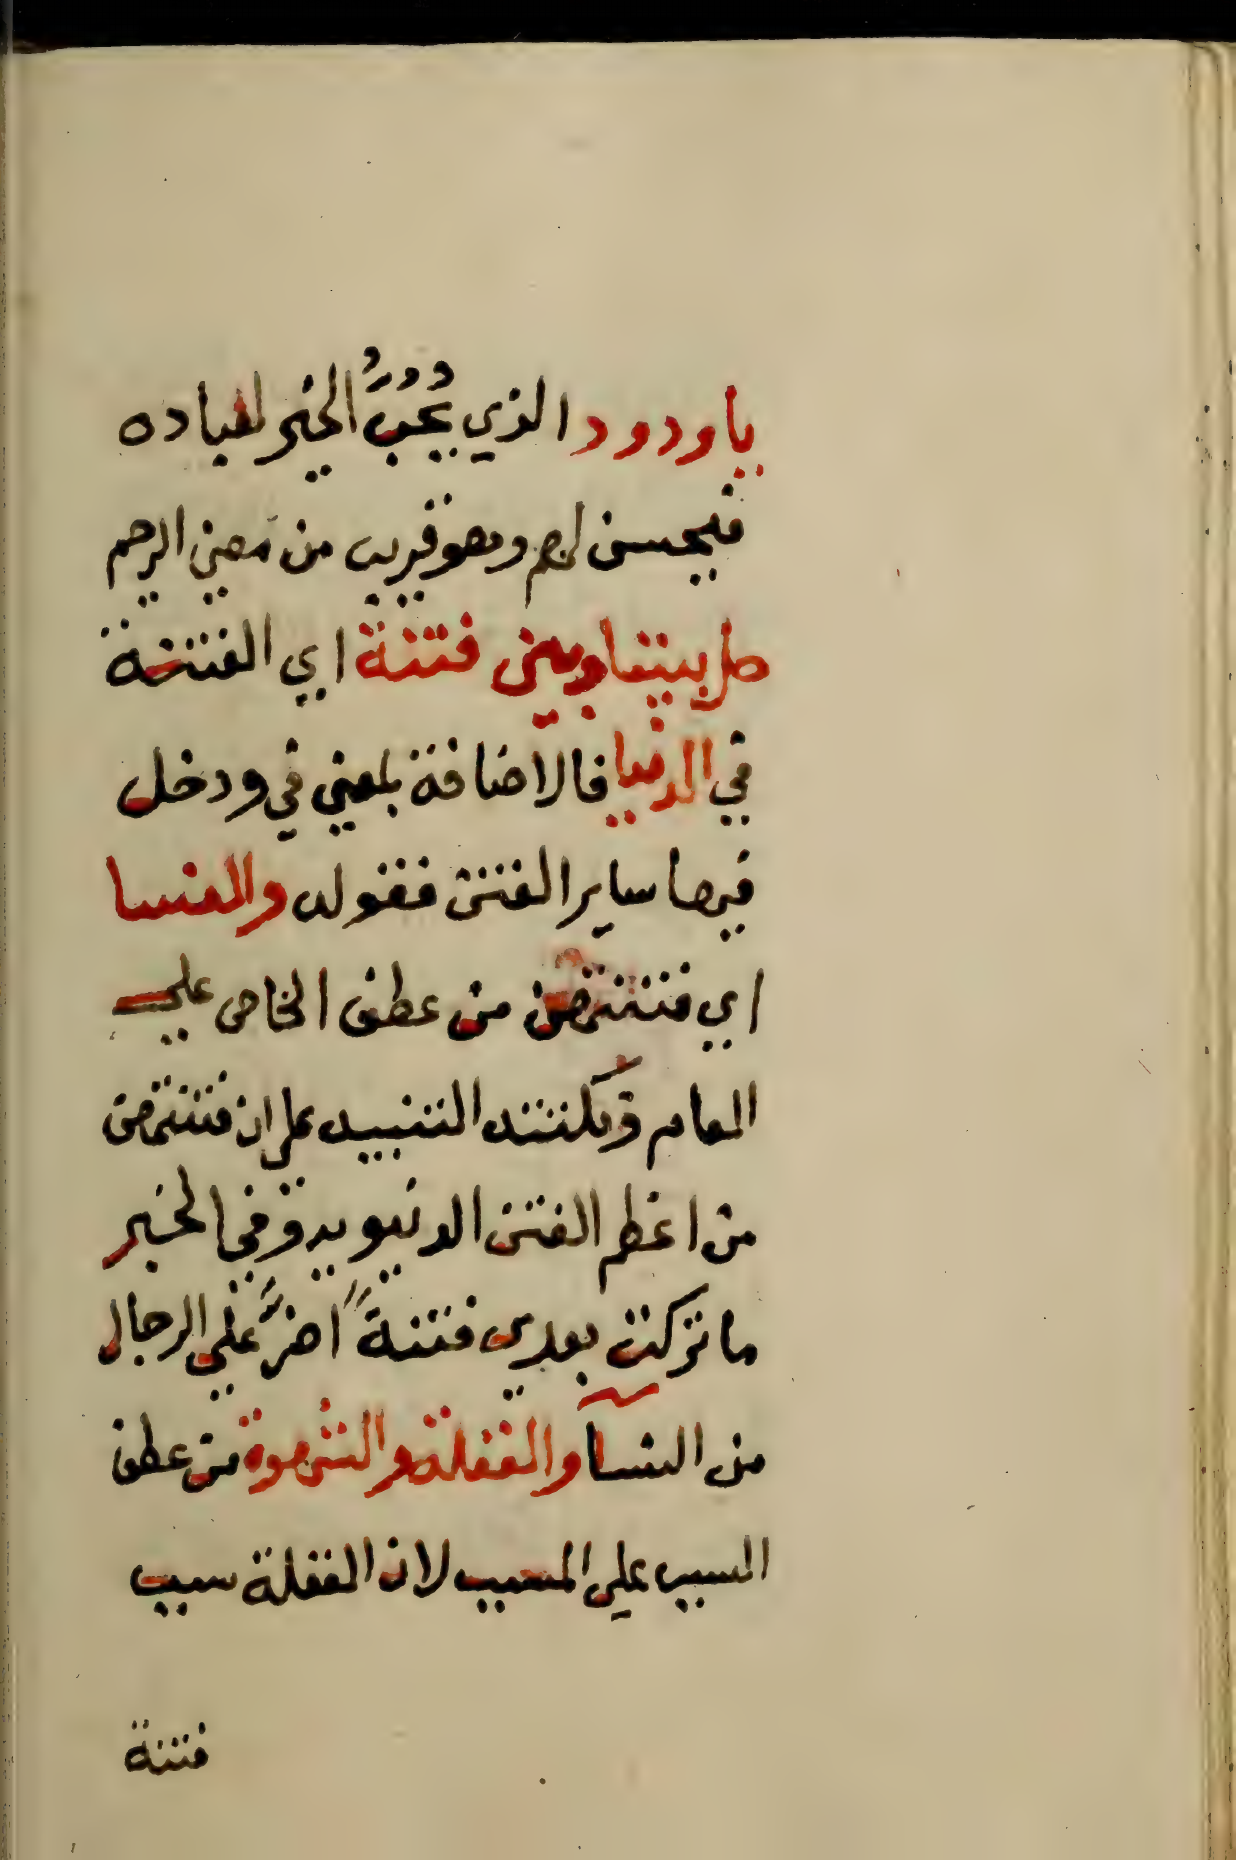 يا ودود الذي يُحبُّ الخير لعباده
فيحسن لهم وهو قريب من معني الرحيم
حل بيننا وبين فتنة اي الفتنة
في الدنيا فالاضافة بمعني في ودخل
فيها ساير الفتن فقوله والنسا
اي فتنتهن من عطف الخاص علي
العام ونكتته التنبيه علي ان فتنتهن
من اعظم الفتن الدنيوية وفي الخبر
ما تركت بعدي فتنةً اضرَّ علي الرجال
من النسآ والغفلة والشهوة من عطف
السبب علي المسبب لان الغفلة سبب
فتنة